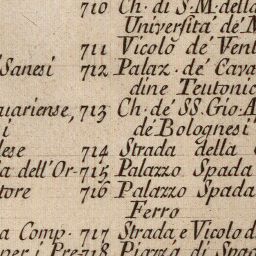 710 Ch. di S. M. della
Università de' M
711 Vicolo de' Vent
Sanesi 712 Palaz. de' Cava
dine Teutonic
uariense, 713 Ch. de' SS. Gio. A
i de' Bolognesi
lese 714 Strada della C
a dell'Or- 715 Palazzo Spada
tore 716 Palazzo Spada
Ferro
a Comp. 717 Strada e Vicolo d
per i Pre- 718 Piazza di Spad